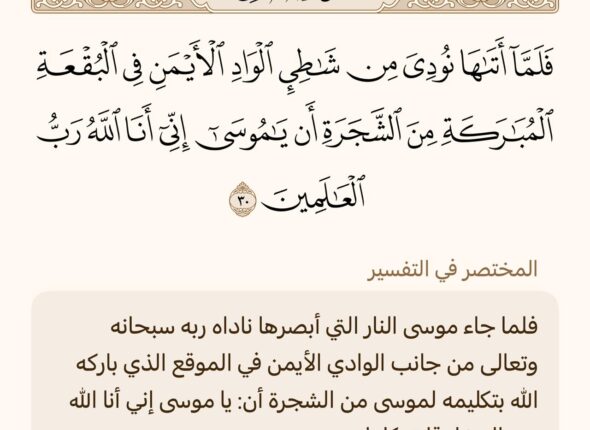 فَلَمَّآ أَتَىٰهَا نُودِىَ مِن شَٰطِئِ ٱلْوَادِ ٱلْأَيْمَنِ فِى ٱلْبُقْعَةِ
ٱلْمُبَٰرَكَةِ مِنَ ٱلشَّجَرَةِ أَن يَٰمُوسَىٰٓ إِنِّىٓ أَنَا ٱللَّهُ رَبُّ
ٱلْعَٰلَمِينَ ٣٠
المختصر في التفسير
فلما جاء موسى النار التي أبصرها ناداه ربه سبحانه
وتعالى من جانب الوادي الأيمن في الموقع الذي باركه
الله بتكليمه لموسى من الشجرة أن: يا موسى إني أنا الله